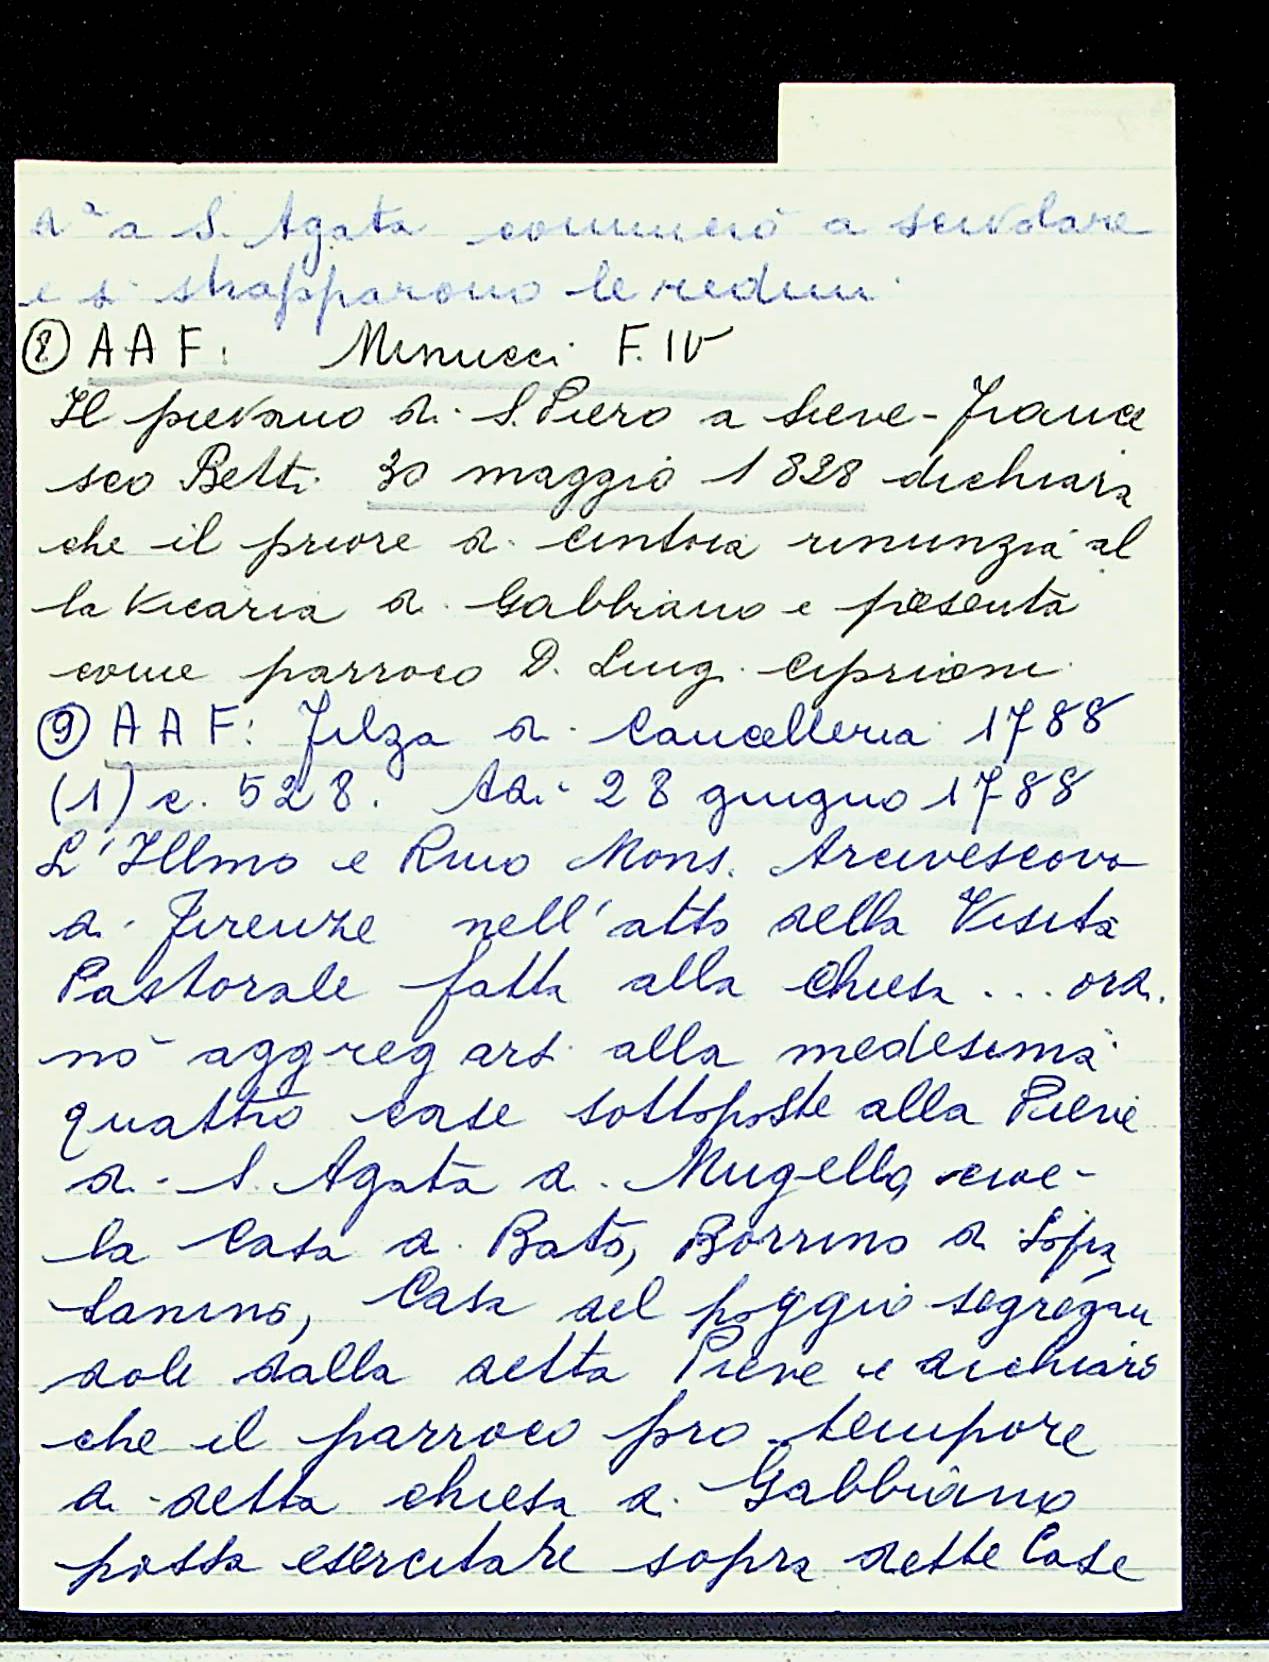 di a S. Agata cominciò a scivolare
e si strapparono le redini.
⑧ AAF: Minucci F. IV
Il pievano di S. Piero a Sieve - France
sco Betti 30 maggio 1828 dichiara
che il priore di Cintoia rinunzia al
la Vicaria di Gabbiano e presenta
come parroco D. Luigi Cipriani
⑨ AAF: Filza di Cancelleria 1788
(1) c. 528. Adì 28 giugno 1788
L'Illmo e Rmo Mons. Arcivescovo
di Firenze nell'atto della Visita
Pastorale fatta alla Chiesa ... ordi
nò aggregarsi alla medesima
quattro case sottoposte alla Pieve
di S. Agata di Mugello, cioè -
la Casa di Bato, Borrino di Sopra
Casa del poggio segregan
dole dalla detta Pieve e dichiarò
che il parroco pro tempore
di detta chiesa di Gabbiano
possa esercitare sopra dette Case